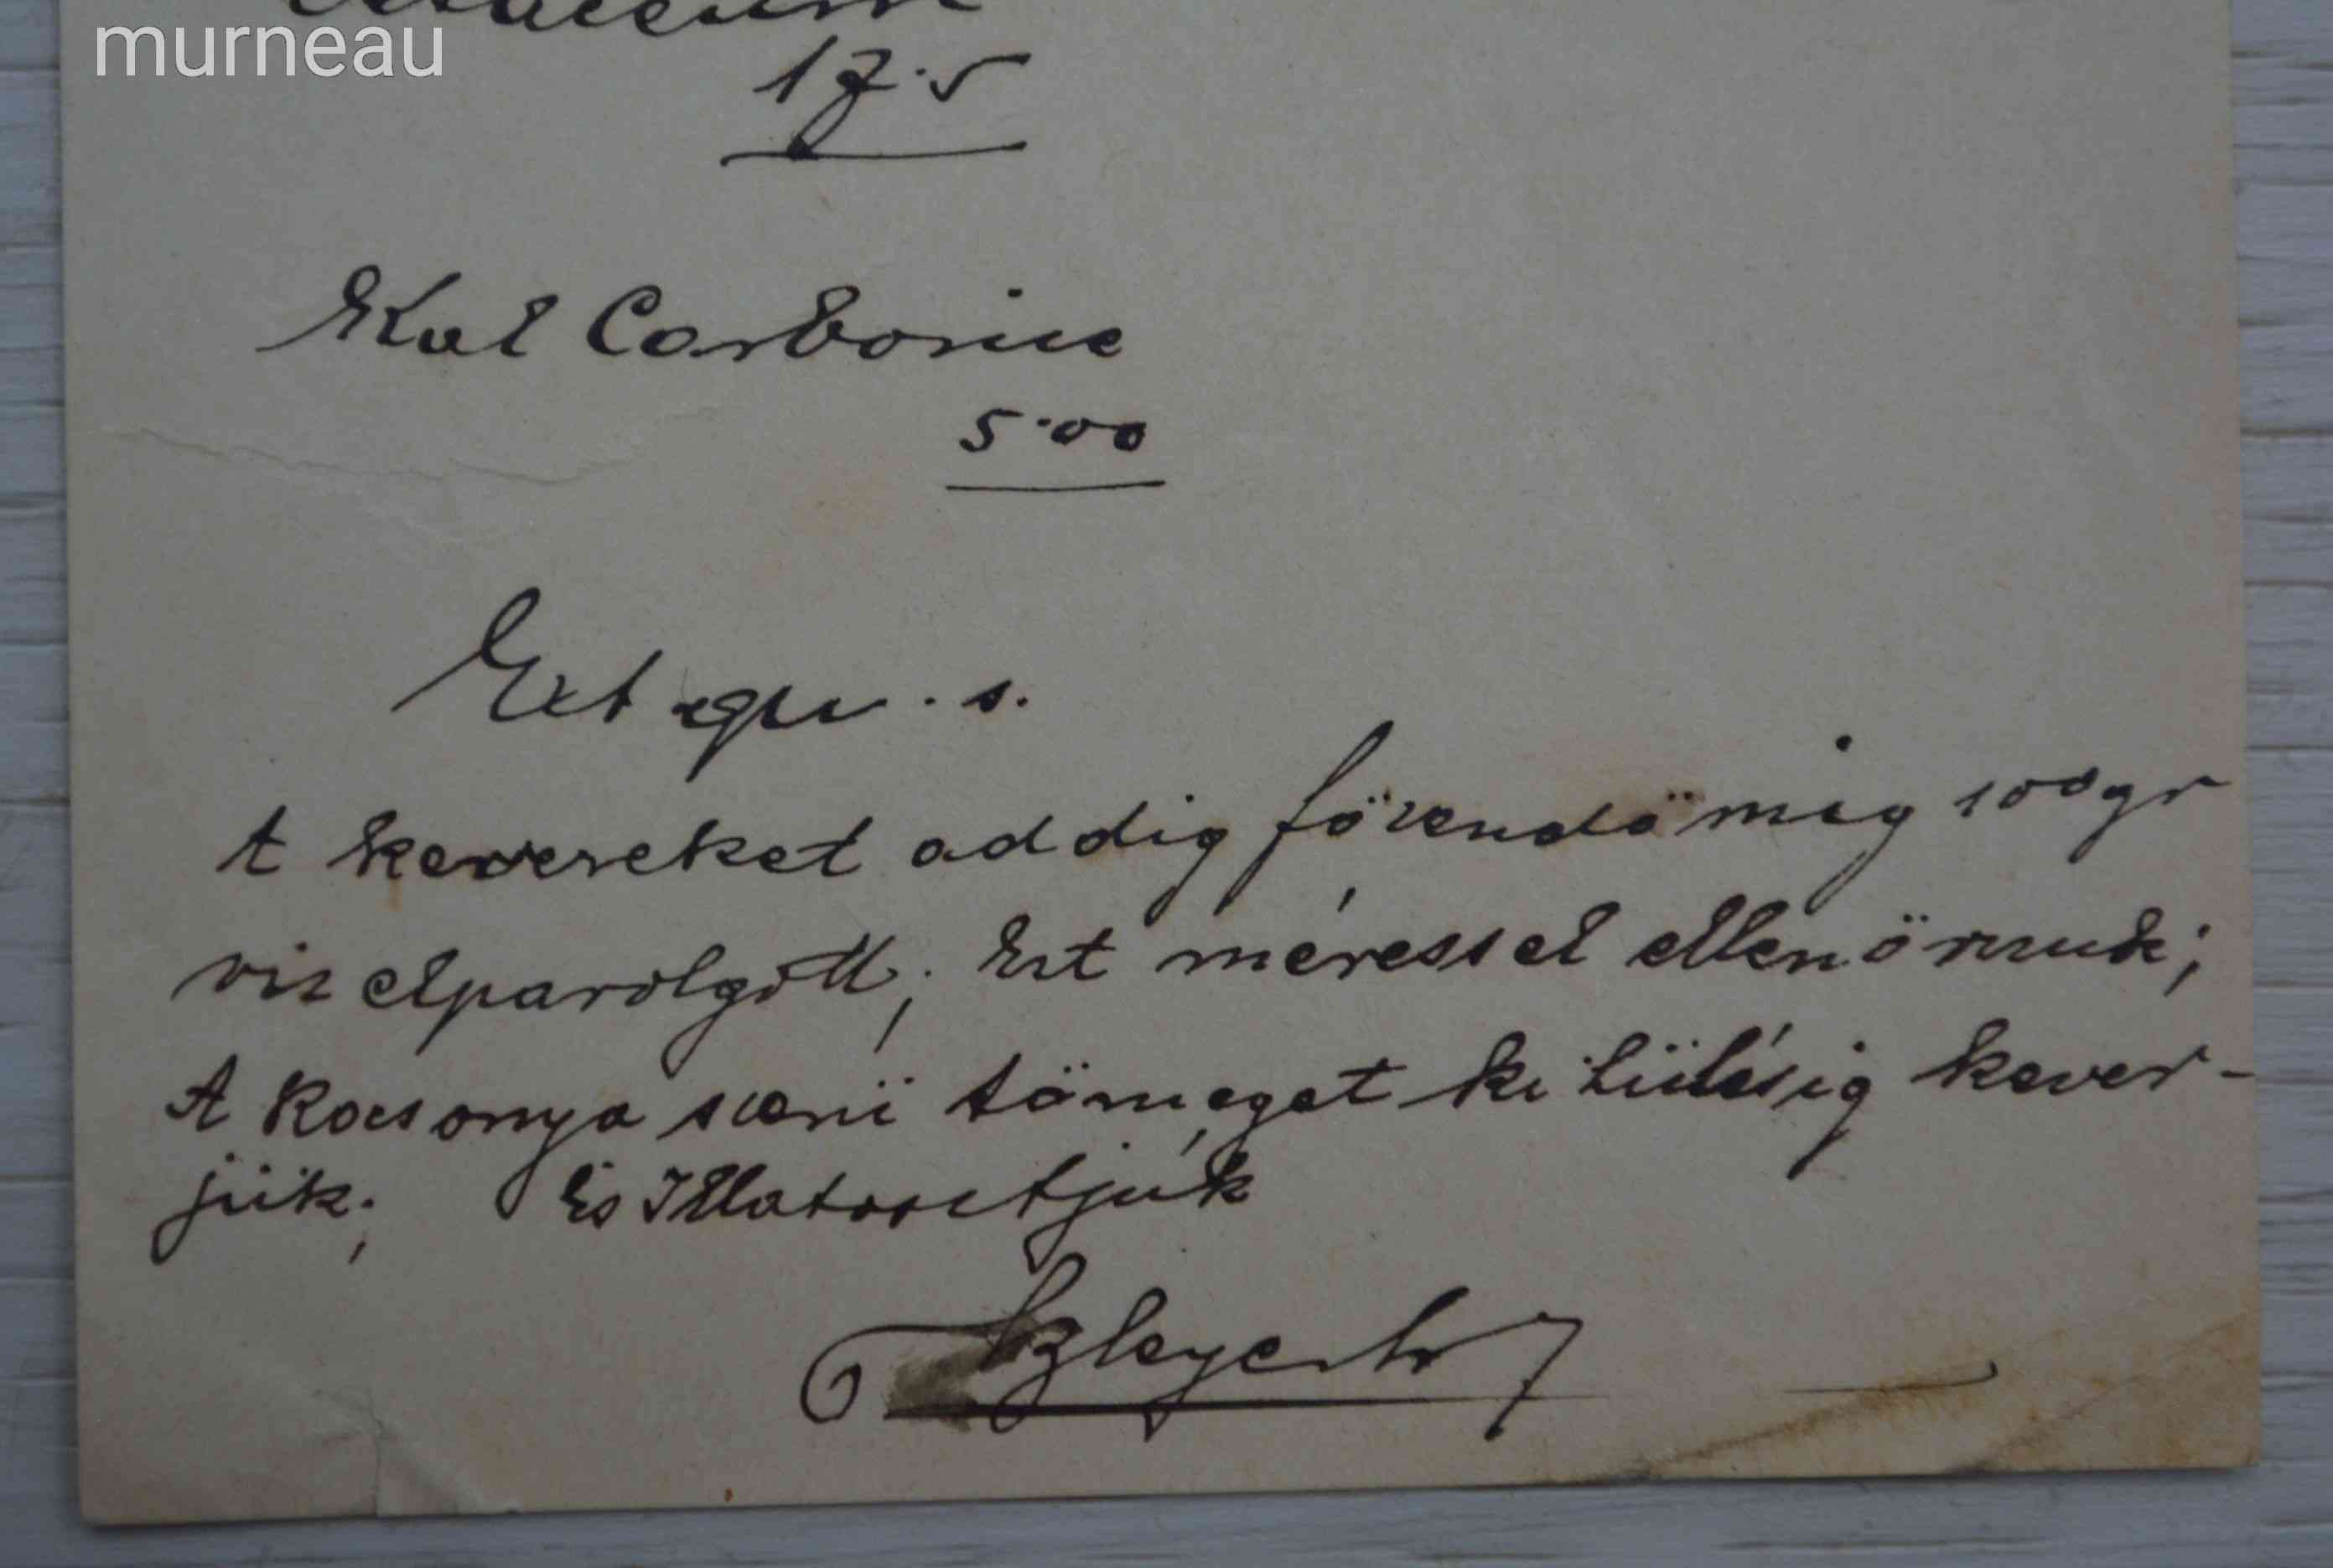 murneau
17·5
Kal Carbonic
5·00
Ext . s.
A kevereket addig főzendő míg 100gr
viz elparolgott; Ezt méréssel ellenőrzuk;
A Kocsonya szerü tömeget ki hülésig kever-
jük; És Illatositjuk